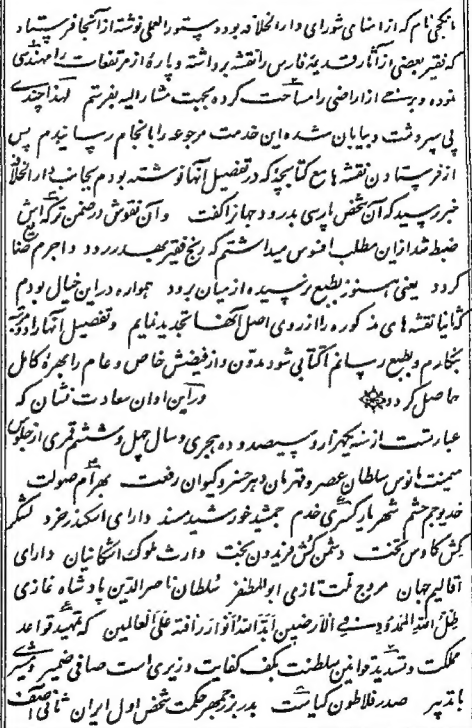 مانکجی نام که از امنای شورای دار الخلافه بود دستور العملی نوشته از آنجا فرستاد
که فقیر بعضی از آثار قدیمهٔ فارس را نقشه برداشته و پارهٔ از مرتفعات را مهندسی
نموده و برخی از اراضی را مساحت کرده بجهت مشار الیه بفرستم لهذا چندی
پی سپر دشت و بیابان شده این خدمت مرجوعه را بانجام رسانیدم پس
از فرستادن نقشه‌ها مع کتابچهٔ که در تفصیل آنها نوشته بودم بجانب دار الخلافه
خبر رسید که آن شخص پارسی بدرود جهانرا گفت و آن نقوش در ضمن ترکه‌اش
ضبط شد ازین مطلب افسوس میداشتم که رنج فقیر بهدر رود و اجرم ضایع
گردد یعنی هنوز بطبع نرسیده از میان برود همواره در این خیال بودم
که ثانیا نقشه‌های مذکوره را از روی اصل آنها تجدید نمایم و تفصیل آنها را دو مرتبه
بنگارم و بطبع رسانم تا کتابی شود مدون و از فیضش خاص و عام را بهرهٔ کامل
حاصل گردد در این اوان سعادت نشان که
عبارتست از سنه یکهزار و سیصد و ده هجری و سال چهل و ششم قمری از جلوس
میمنت مانوس سلطان عصر و قهرمان دهر خسرو کیوان رفعت بهرام صولت
خدیو جم حشم شهریار کسری خدم جمشید خورشید مسند دارای اسکندر خرد لشکر
کش کاوس تخت دشمن کش فریدون بخت وارث ملوک اشکانیان دارای
اقالیم جهان مروج ملت تازی ابو المظفر سلطان ناصر الدین پادشاه غازی
ظل الله الممدود فی الارضین ابد الله انوار رافته علی العالمین که تمهید قواعد
مملکت و تسدید قوانین سلطنت بکف کفایت وزیری است صافی ضمیر و مشیری
با تدبیر صدر فلاطون کیاست بدر بزرجمهر حکمت شخص اول ایران ثانی آصف